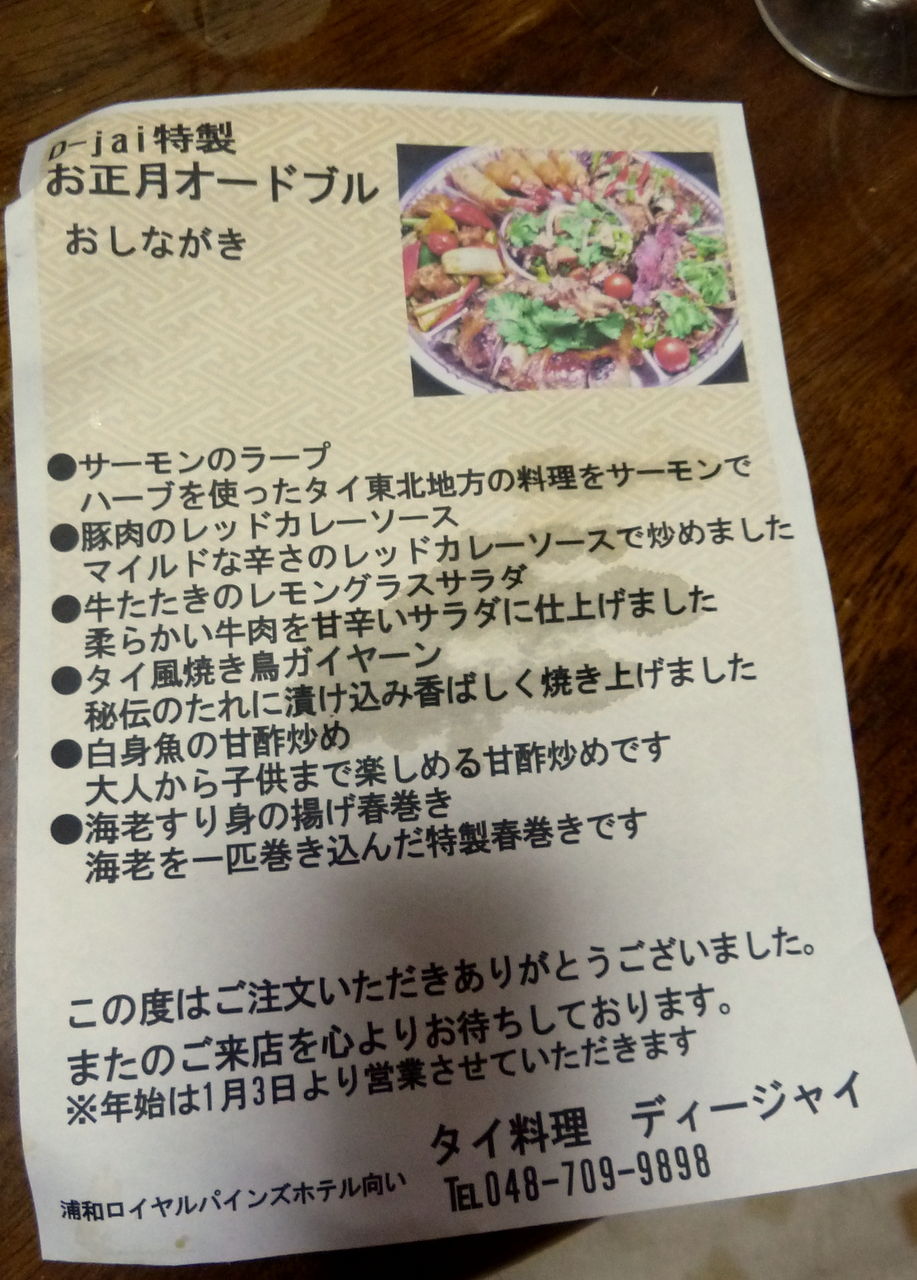 D-jai特製
お正月オードブル
おしながき
●サーモンのラープ
ハーブを使ったタイ東北地方の料理をサーモンで
●豚肉のレッドカレーソース
マイルドな辛さのレッドカレーソースで炒めました
●牛たたきのレモングラスサラダ
柔らかい牛肉を甘辛いサラダに仕上げました
●タイ風焼き鳥ガイヤーン
秘伝のたれに漬け込み香ばしく焼き上げました
●白身魚の甘酢炒め
大人から子供まで楽しめる甘酢炒めです
●海老すり身の揚げ春巻き
海老を一匹巻き込んだ特製春巻きです
この度はご注文いただきありがとうございました。
またのご来店を心よりお待ちしております。
※年始は1月3日より営業させていただきます
タイ料理 ディージャイ
浦和ロイヤルパインズホテル向い
℡048-709-9898